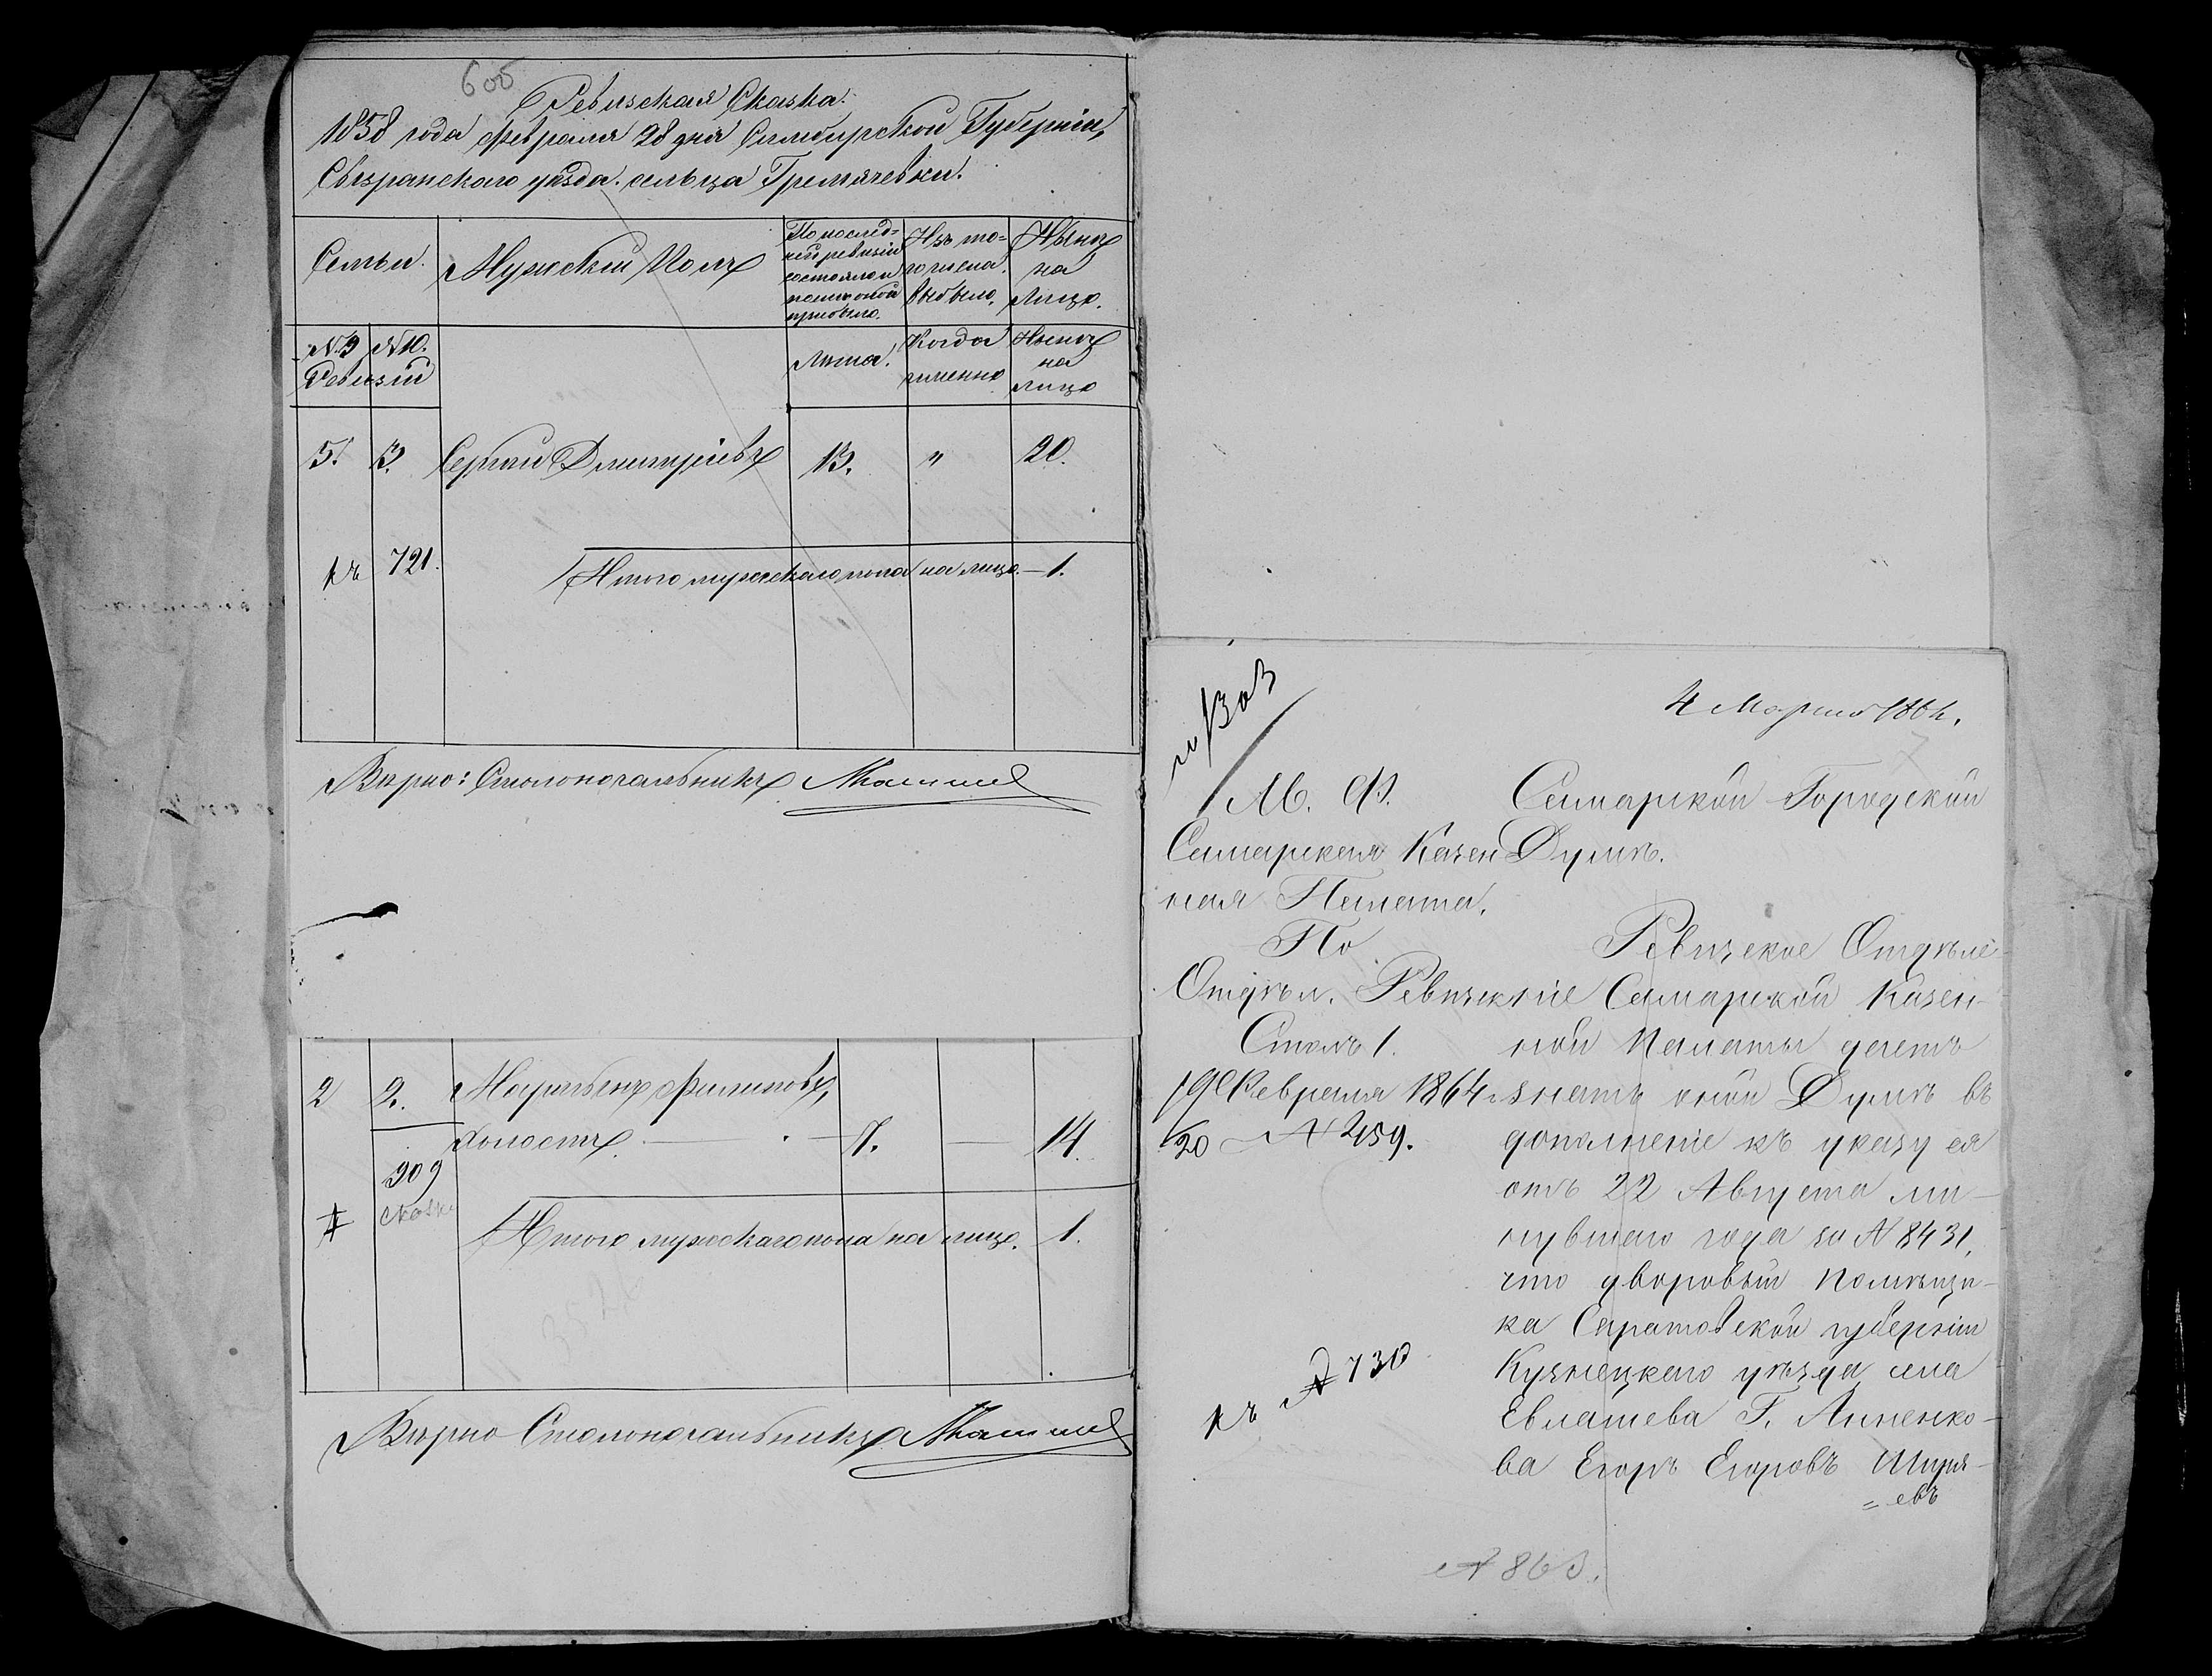 605
Ревизская Сказка.
1858 года февраля 28 дня Симбирской Губерніи,
Сызранскаго уѣзда. сельца Гремячевки.
Семьи.
Мужескій Полъ
По послѣд=
ней ревизіи
состояло и
послѣ оной
прибыло.
Изъ то-
го числа
выбыло.
Нынѣ
на
лицо.
№ 9 № 10.
Ревизіи
Лѣта.
Когда
именно
Нынѣ
на
лицо
5. 3. Сергѣй Дмитріевъ 13. " 20.
къ 721. Итого мужескаго пола на лицо — 1.
Вѣрно: Столоначальникъ
2 2. Маркелъ Филиповъ,
холостъ — 7. — 14
909
сказк
Итого мужескаго пола на лицо. 1.
Вѣрно Столоначальникъ
4 Марта 1864.
М. Ф.
Самарская Казен
ная Палата.
По
Отдѣл. Ревизск
Столъ 1.
19 Февраля 1864 г.
20 № 2159.
къ № 730
Самарской Городской
Думѣ.
Ревизское Отдѣле-
ніе Самарской Казен-
ной Палаты даетъ
знать оной Думѣ въ
дополненіе къ указу ея
отъ 22 Августа ми-
нувшаго года за № 8431,
что дворовый помѣщи-
ка Саратовской губерніи
Кузнецкаго уѣзда села
Евлашева Г. Анненко-
ва Егоръ Егоровъ Ширя-
= евъ
№ 863.